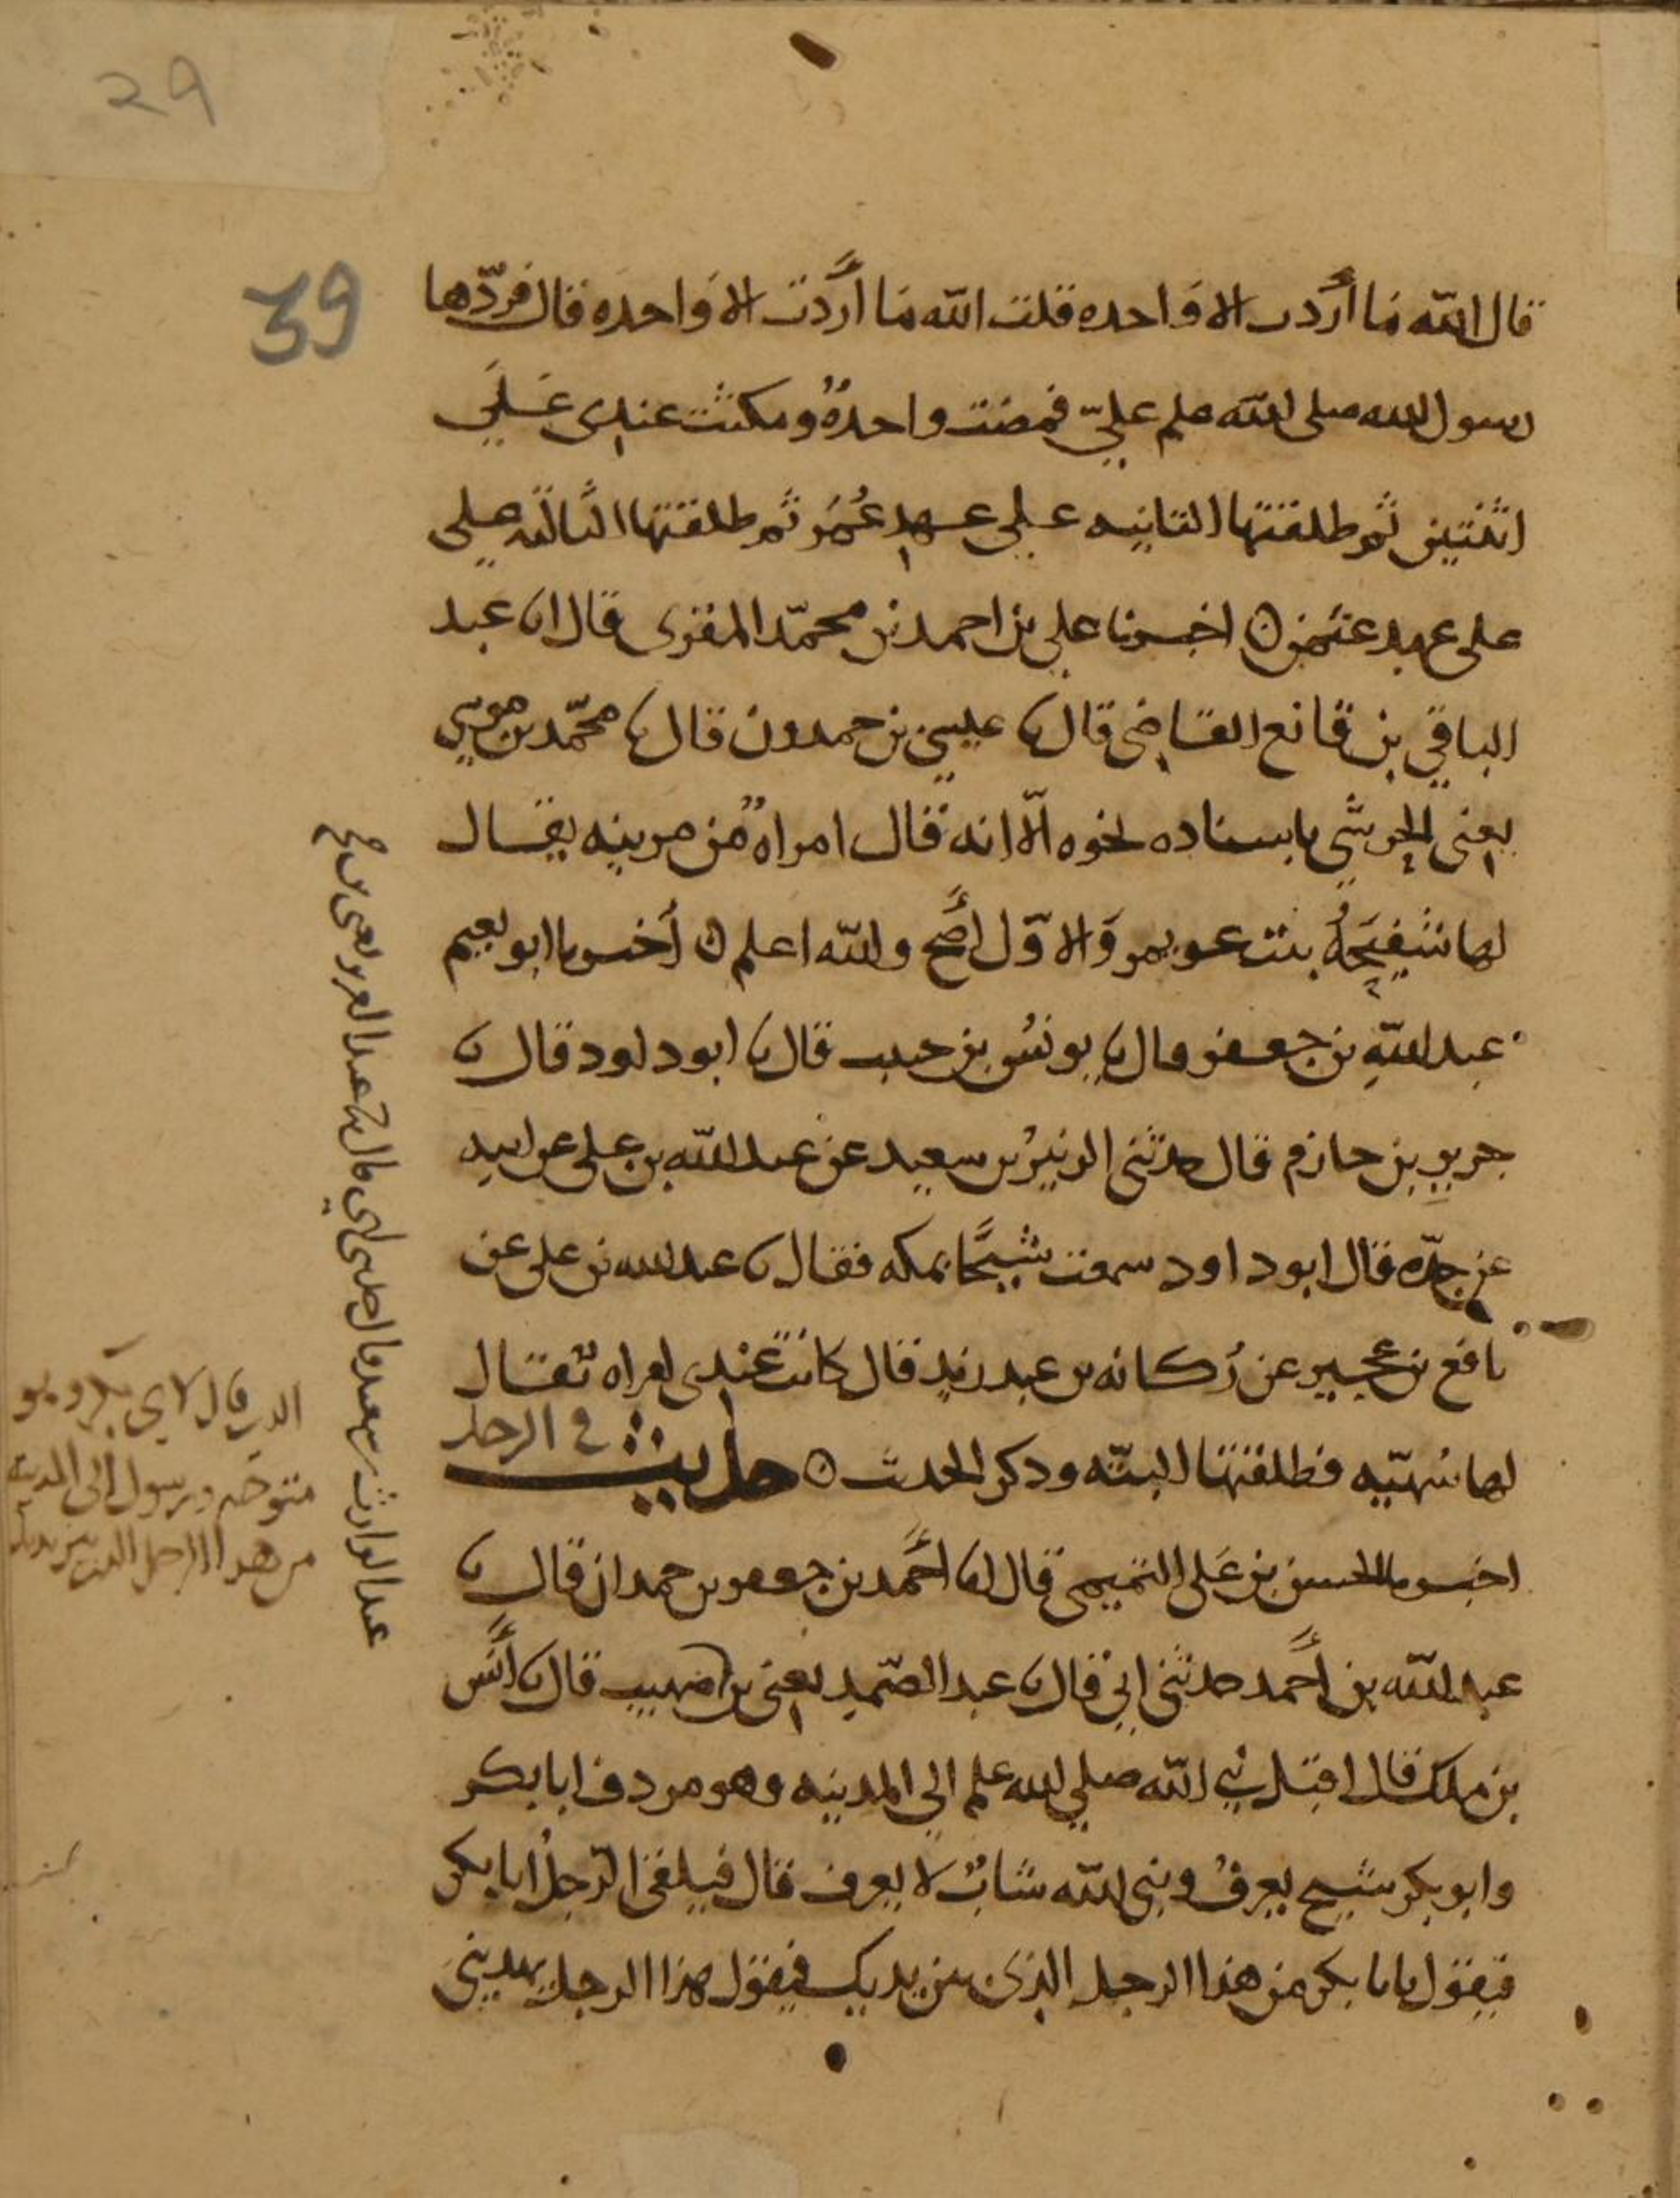 قال الله ما أردت الا واحده قلت الله ما أردت الا واحده قال فردّها
رسول الله صلى الله علم عليّ فمضت واحدةٌ ومكثت عندى عَلَي
اثنتين ثم طلقتها الثانيه علي عهد عُمَر ثم طلقتها الثالثه علي
على عهد عثمن ٥ اخبرنا علي بن احمد بن محمّد المقرى قال انا عبد
الباقي بن قانع القاضى قال نا عيسي بن حمدون قال نا محمّد بن موسي
يعنى الحرشي باسناده نحوه الّا انه قال امراةٌ من مزينه يقال
لها شفيحةُ بنت عويمر وَالاوّل أصح والله اعلم ٥ أخبرنا ابو نعيم
عبد اللهِ بن جعفر قال نا يونسُ بن حبيب قال نا ابو داود قال نا
جريرِ بن حازم قال حدثنى الزبيرُ بن سعيد عن عبد الله بن على عن ابيه
عن جدّه قال ابو داود سمعت شيخًا بمكه فقال نا عبد الله بن على عن
نافع بن عجيرٍ عن رُكانه بن عبد يزيد قال كانت عندى امراه تقال
لها سُهيّه فطلقتها البتّه وذكر الحديث ٥ حديث فى الرجل
اخبرنا الحسن بن عَلى التميمى قال انا أحمد بن جعفر بن حمدان قال نا
عبد الله بن أحمد حدثنى ابى قال نا عبد الصّمد يعنى بن صهيب قال نا أنس
بن ملك قال اقبل نبي الله صلي الله علم الي المدينه وهو مردف ابا بكر
وابو بكر شيخ يعرفُ ونبى الله شابٌ لا يعرف قال فيلقى الرّجلُ ابا بكر
فيقول يا با بكر من هذا الرجل الذى بين يديك فيقول هذا الرجل يهدينى
39
29